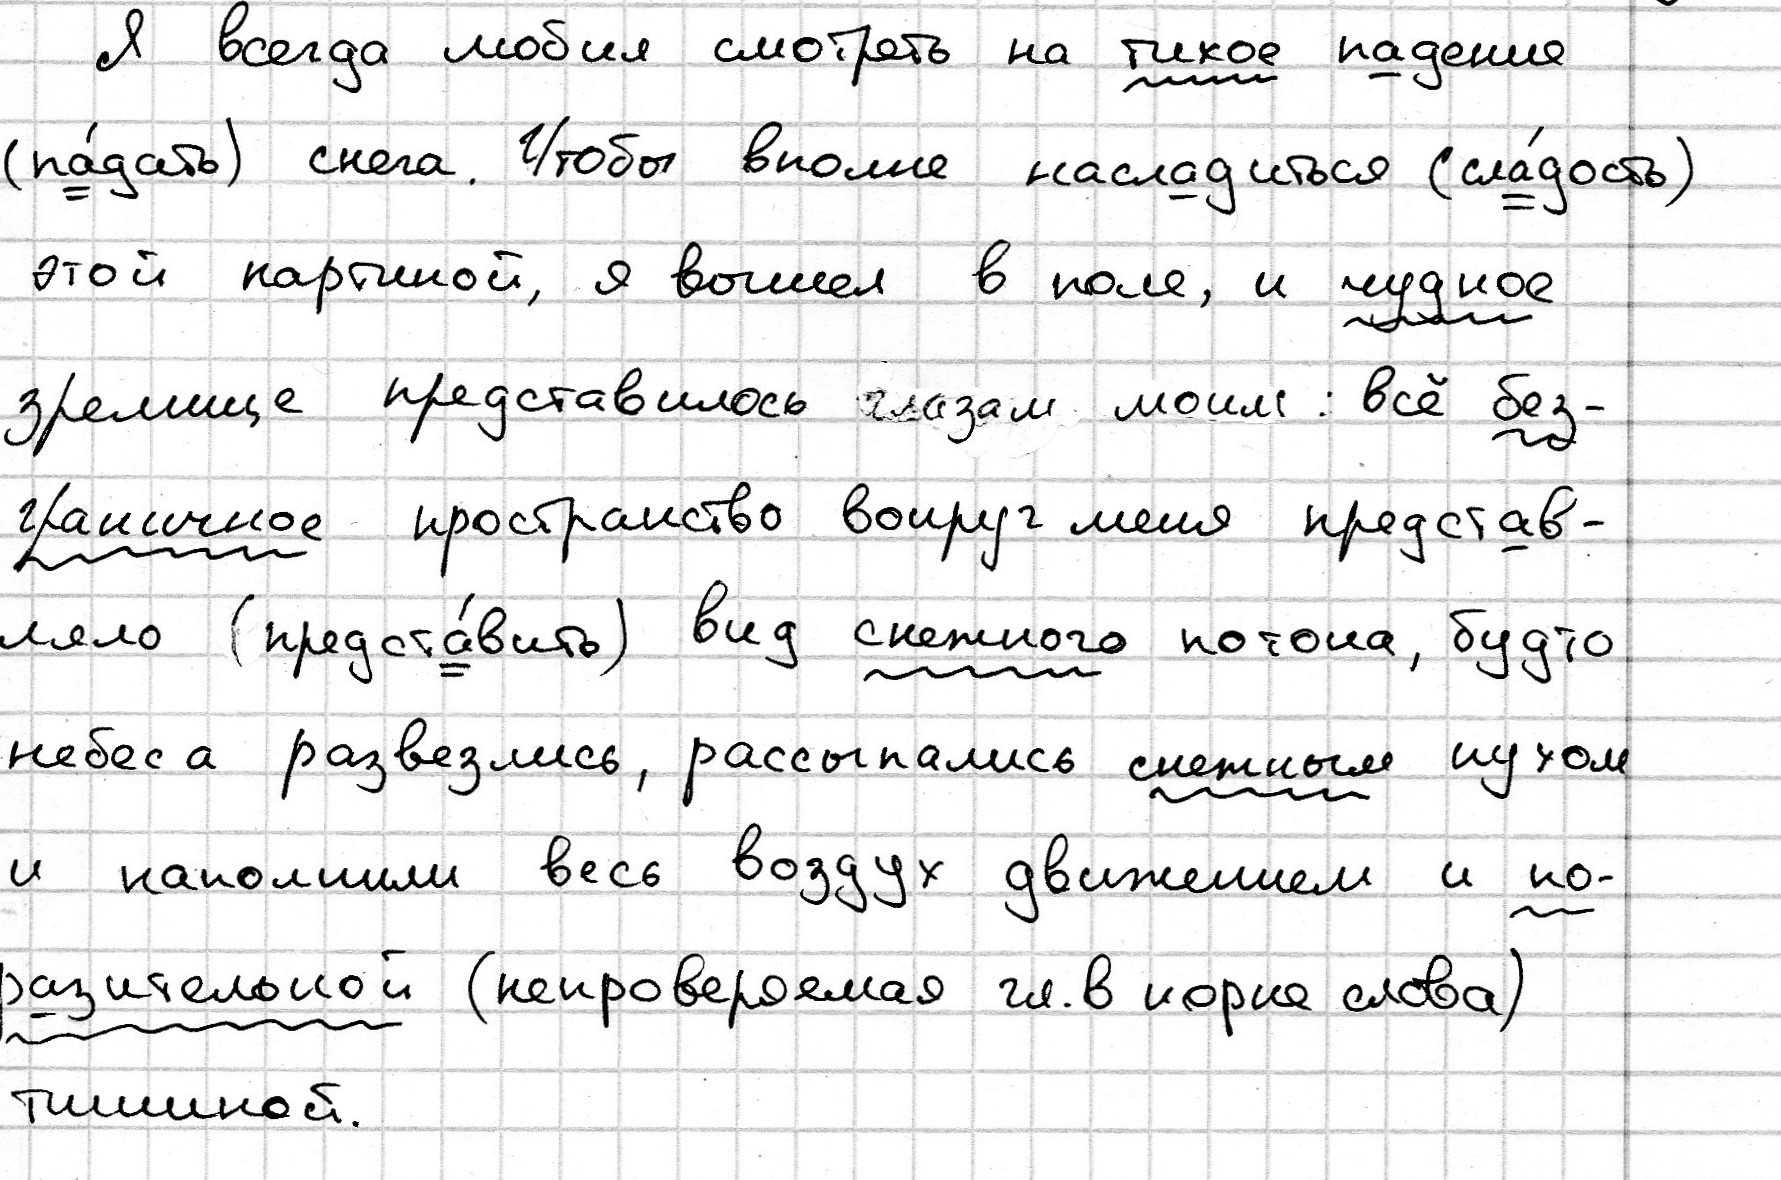 Я всегда любил смотреть на тихое падение
(па́дать) снега. Чтобы вполне насладиться (сла́дость)
этой картиной, я вышел в поле, и чудное
зрелище представилось глазам моим: всё без-
граничное пространство вокруг меня представ-
ляло (предста́вить) вид снежного потока, будто
небеса развезлись, рассыпались снежным пухом
и наполнили весь воздух движением и по-
разительной (непроверяемая гл. в корне слова)
тишиной.